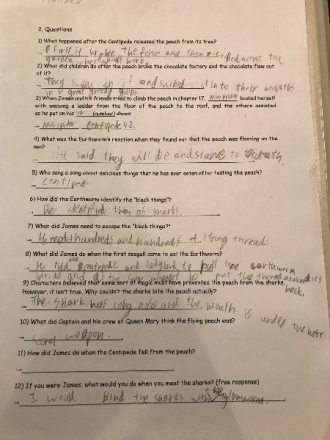 2. Questions
1) What happened after the Centipede released the peach from its tree?
First, it broke the fence and then it rolled across the
garden
2) What did children do after the peach broke the chocolate factory and the chocolate flew out
of it?
They and it into their mouths
in a great greedy
3) When James and his friends tried to climb the peach in chapter 17, busied herself
with weaving a ladder from the floor of the peach to the roof, and the others assisted
as he put on his (number) shoes!
centipede 42.
4) What was the Earthworm's reaction when they found out that the peach was floating on the
sea?
He said they will die and starve to death.
5) Who sang a song about delicious things that he has ever eaten after tasting the peach?
Centipede
6) How did the Earthworm identify the "black things"?
He identified them as sharks.
7) What did James need to escape the "black things"?
He need hundreds and hundreds of long thread.
8) What did James do when the first seagull came to eat the Earthworm?
He told centipede and ladybird to pull the earthworm
inside and at the same he put the thread around its
neck.
9) Characters believed that some sort of magic must have prevented the peach from the sharks.
However, it isn't true. Why couldn't the sharks bite the peach actually?
The shark has very nose and the mouth is under the nose
10) What did Captain and his crew of Queen Mary think the flying peach was?
secret weapon.
11) How did James do when the Centipede fell from the peach?
12) If you were James, what would you do when you meet the sharks? (free response)
I would blind the sharks with glowworm.